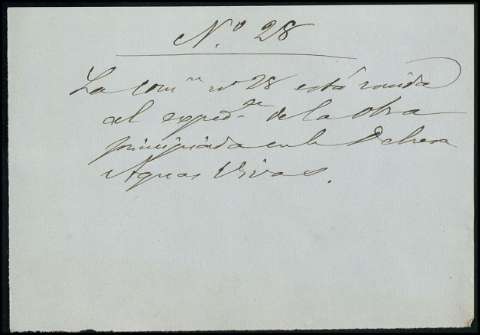 N.º 28
La com.ⁿ nº 28 está unida
al exped.te de la obra
principiada en la Dehesa
Aguas Vivas.